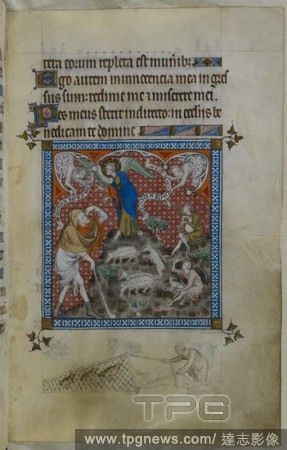 tera eorum repleta est munibz
Ego autem in innocencia mea in gres
sus sum: redime me miserere mei.
Pes meus stetit in directo: in ecclis be
nedicam te domine
TPG
www.tpgnews.com/ 達志影像